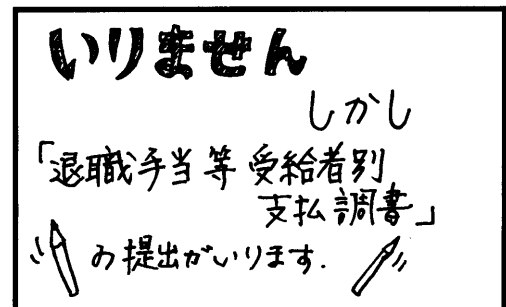 いりません
しかし
「退職手当等受給者別
支払調書」
の提出がいります.